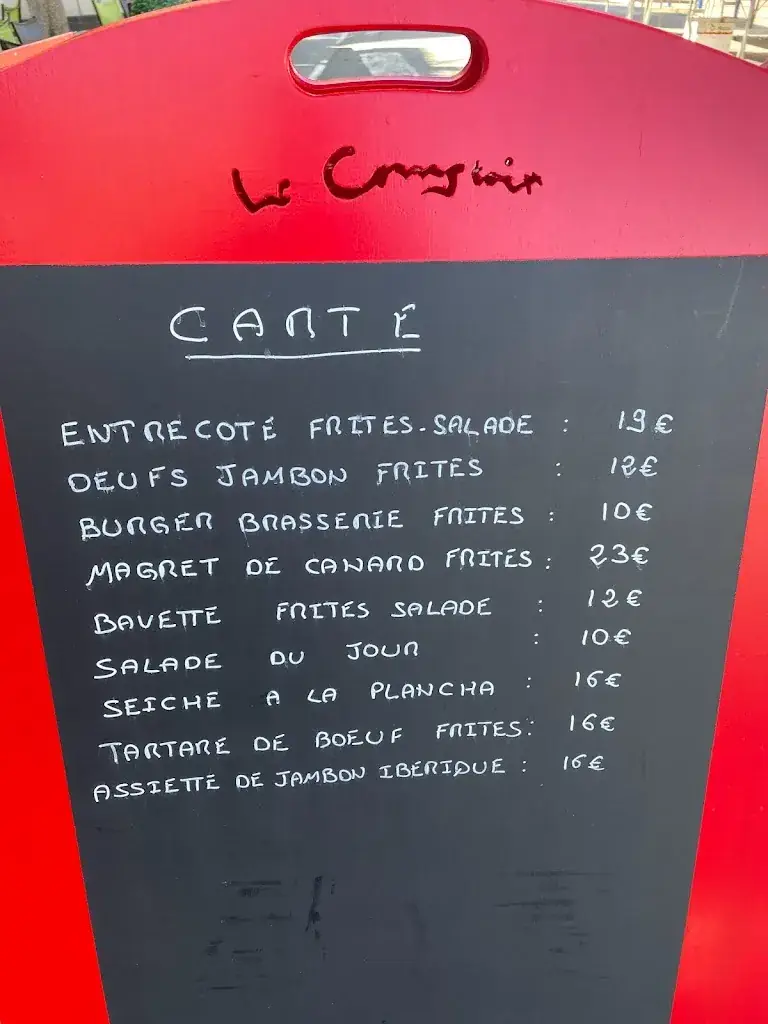 Le Comptoir
CARTE
ENTRECOTE FRITES-SALADE : 19€
OEUFS JAMBON FRITES : 12€
BURGER BRASSERIE FRITES : 10€
MAGRET DE CANARD FRITES : 23€
BAVETTE FRITES SALADE : 12€
SALADE DU JOUR : 10€
SEICHE A LA PLANCHA : 16€
TARTARE DE BOEUF FRITES : 16€
ASSIETTE DE JAMBON IBERIQUE : 16€